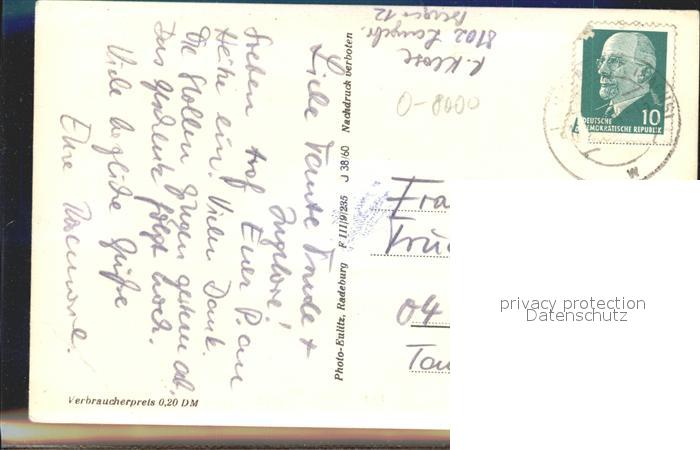 Liebe Tante Trude +
Ingelore!
Soeben traf Euer P. am
Heike ein. Vielen Dank.
Die Stollen gingen gestern ab,
Das Gedenk folgt noch.
Viele herzliche Grüße
Eure
Verbraucherpreis 0,20 DM
Photo-Eulitz, Radeburg F III/9/235 J 38/60 Nachdruck verboten
R. Klose
8102
12
0-8000
DEUTSCHE
DEMOKRATISCHE REPUBLIK
10
Fra
Tru
04
Tau
privacy protection
Datenschutz